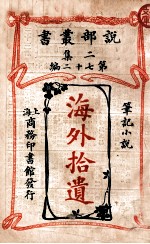 說部叢書
二集
第七十二編
筆記小説
海外拾遺
上海商務印書館發行